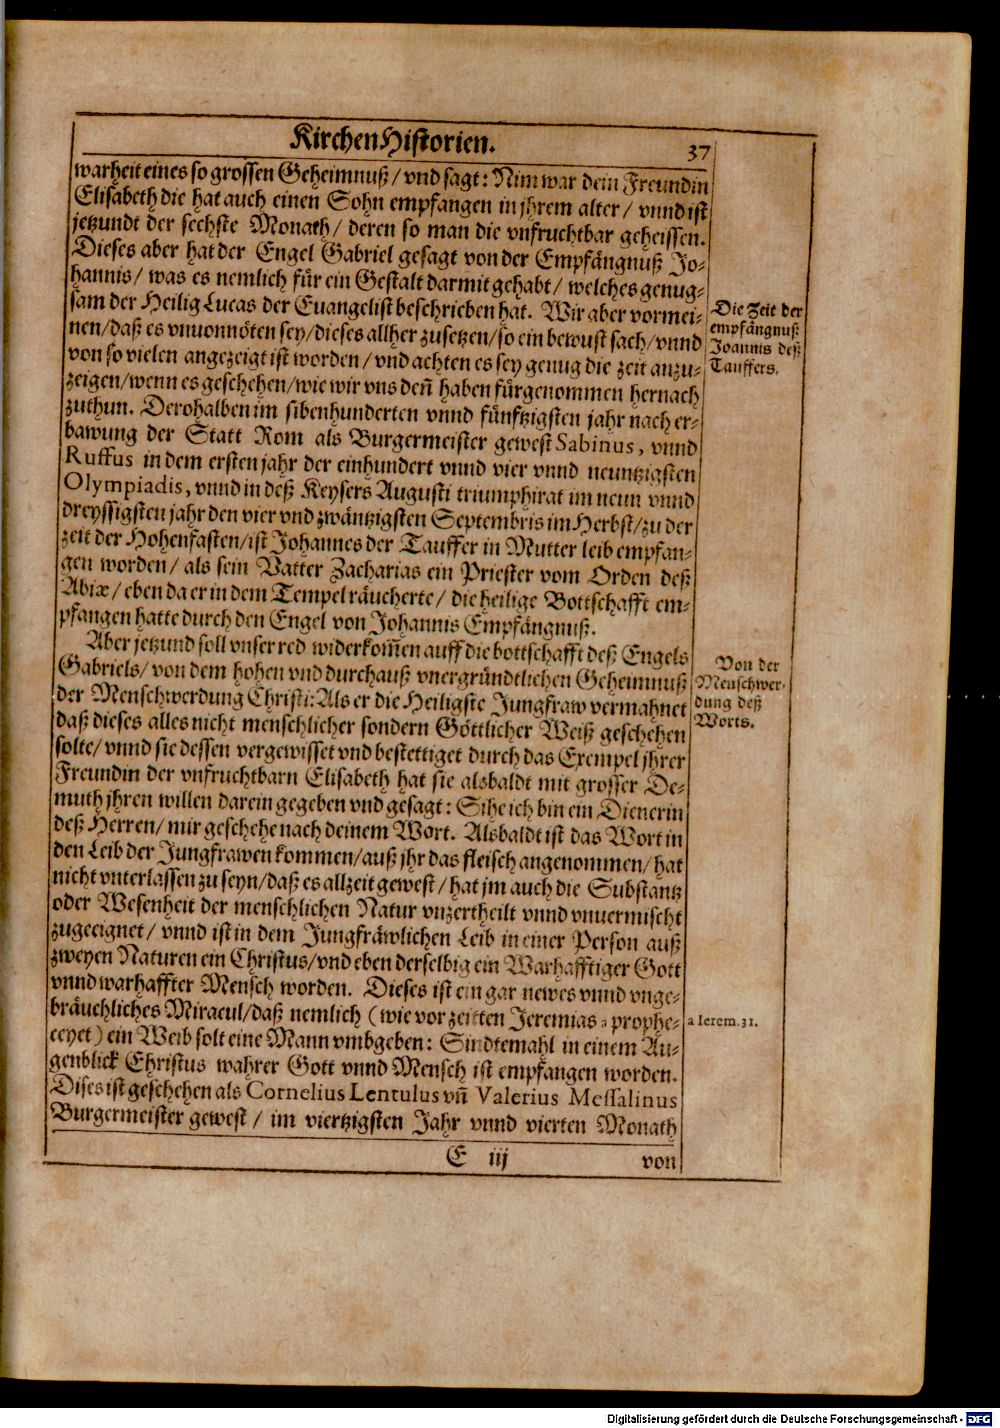 KirchenHistorien. 37
warheit eines so grossen Geheimnuß/ vnd sagt: Nim war dein Freundin
Elisabeth die hat auch einen Sohn empfangen in jhrem alter/ vnnd ist
jetzundt der sechste Monath/ deren so man die vnfruchtbar geheissen.
Dieses aber hat der Engel Gabriel gesagt von der Empfängnuß Jo-
hannis/ was es nemlich für ein Gestalt darmit gehabt/ welches genug-
sam der Heilig Lucas der Euangelist beschrieben hat. Wir aber vormei-
nen/daß es vnuonnöten sey/dieses allher zusetzen/so ein bewust sach/vnnd
von so vielen angezeigt ist worden/ vnd achten es sey genug die zeit anzu-
zeigen/wenn es geschehen/wie wir vns deñ haben fürgenommen hernach
zuthun. Derohalben im sibenhunderten vnnd fünftzigsten jahr nach er-
bawung der Statt Rom als Burgermeister gewest Sabinus, vnnd
Ruffus in dem ersten jahr der einhundert vnnd vier vnnd neuntzigsten
Olympiadis, vnnd in deß Keysers Augusti triumphirat im neun vnnd
dreyssigsten jahr den vier vnd zwäntzigsten Septembris im Herbst/zu der
zeit der Hohenfasten/ist Johannes der Tauffer in Mutter leib empfan-
gen worden/ als sein Vatter Zacharias ein Priester vom Orden deß
Abiæ/ eben da er in dem Tempel räucherte/ die heilige Bottschafft em-
pfangen hatte durch den Engel von Johannis Empfängnuß.
Die Zeit der
empfängnuß
Joannis deß
Tauffers.
Aber jetzund soll vnser red widerkom̃en auff die bottschafft deß Engels
Gabriels/ von dem hohen vnd durchauß vnergründtlichen Geheimnuß
der Menschwerdung Christi: Als er die Heiligste Jungfraw vermahnet
daß dieses alles nicht menschlicher sondern Göttlicher Weiß geschehen
solte/ vnnd sie dessen vergewisset vnd bestettiget durch das Exempel jhrer
Freundin der vnfruchtbarn Elisabeth hat sie alsbaldt mit grosser De-
muth jhren willen darein gegeben vnd gesagt: Sihe ich bin ein Dienerin
deß Herren/ mir geschehe nach deinem Wort. Alsbaldt ist das Wort in
den Leib der Jungfrawen kommen/auß jhr das fleisch angenommen/ hat
nicht vnterlassen zu seyn/daß es allzeit gewest/ hat jm auch die Substantz
oder Wesenheit der menschlichen Natur vnzertheilt vnnd vnuermischt
zugeeignet/ vnnd ist in dem Jungfräwlichen Leib in einer Person auß
zweyen Naturen ein Christus/vnd eben derselbig ein Warhafftiger Gott
vnnd warhaffter Mensch worden. Dieses ist ein gar newes vnnd vnge-
bräuchliches Miracul/daß nemlich (wie vor zeitten Jeremias a prophe-
ceyet) ein Weib solt eine Mann vmbgeben: Sindtemahl in einem Au-
genblick Christus wahrer Gott vnnd Mensch ist empfangen worden.
Dises ist geschehen als Cornelius Lentulus vñ Valerius Messalinus
Burgermeister gewest/ im viertzigsten Jahr vnnd vierten Monath
Von der
Menschwer-
dung deß
Worts.
a Ierem. 31.
E iij von
Digitalisierung gefördert durch die Deutsche Forschungsgemeinschaft - DFG